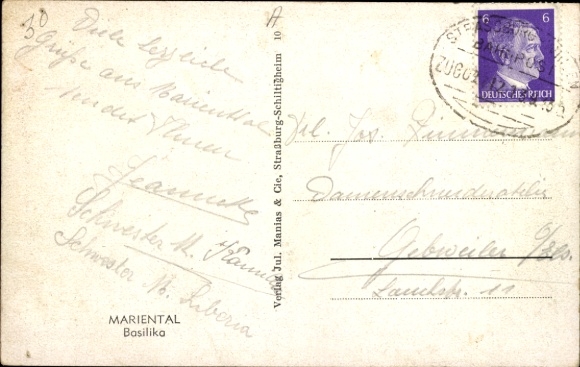 30
A
Viele herzliche
Grüße aus Marienthal
sendet Ihnen
Jeannette
Schwester M.
Schwester M. Liberia
MARIENTAL
Basilika
Verlag Jul. Manias & Cie, Straßburg-Schiltigheim 10
6 6
DEUTSCHES REICH
BAHNPOST
ZUG
Frl. Jos. Zimmermann
Damenschneideratelier
Gebweiler O/Els.
11